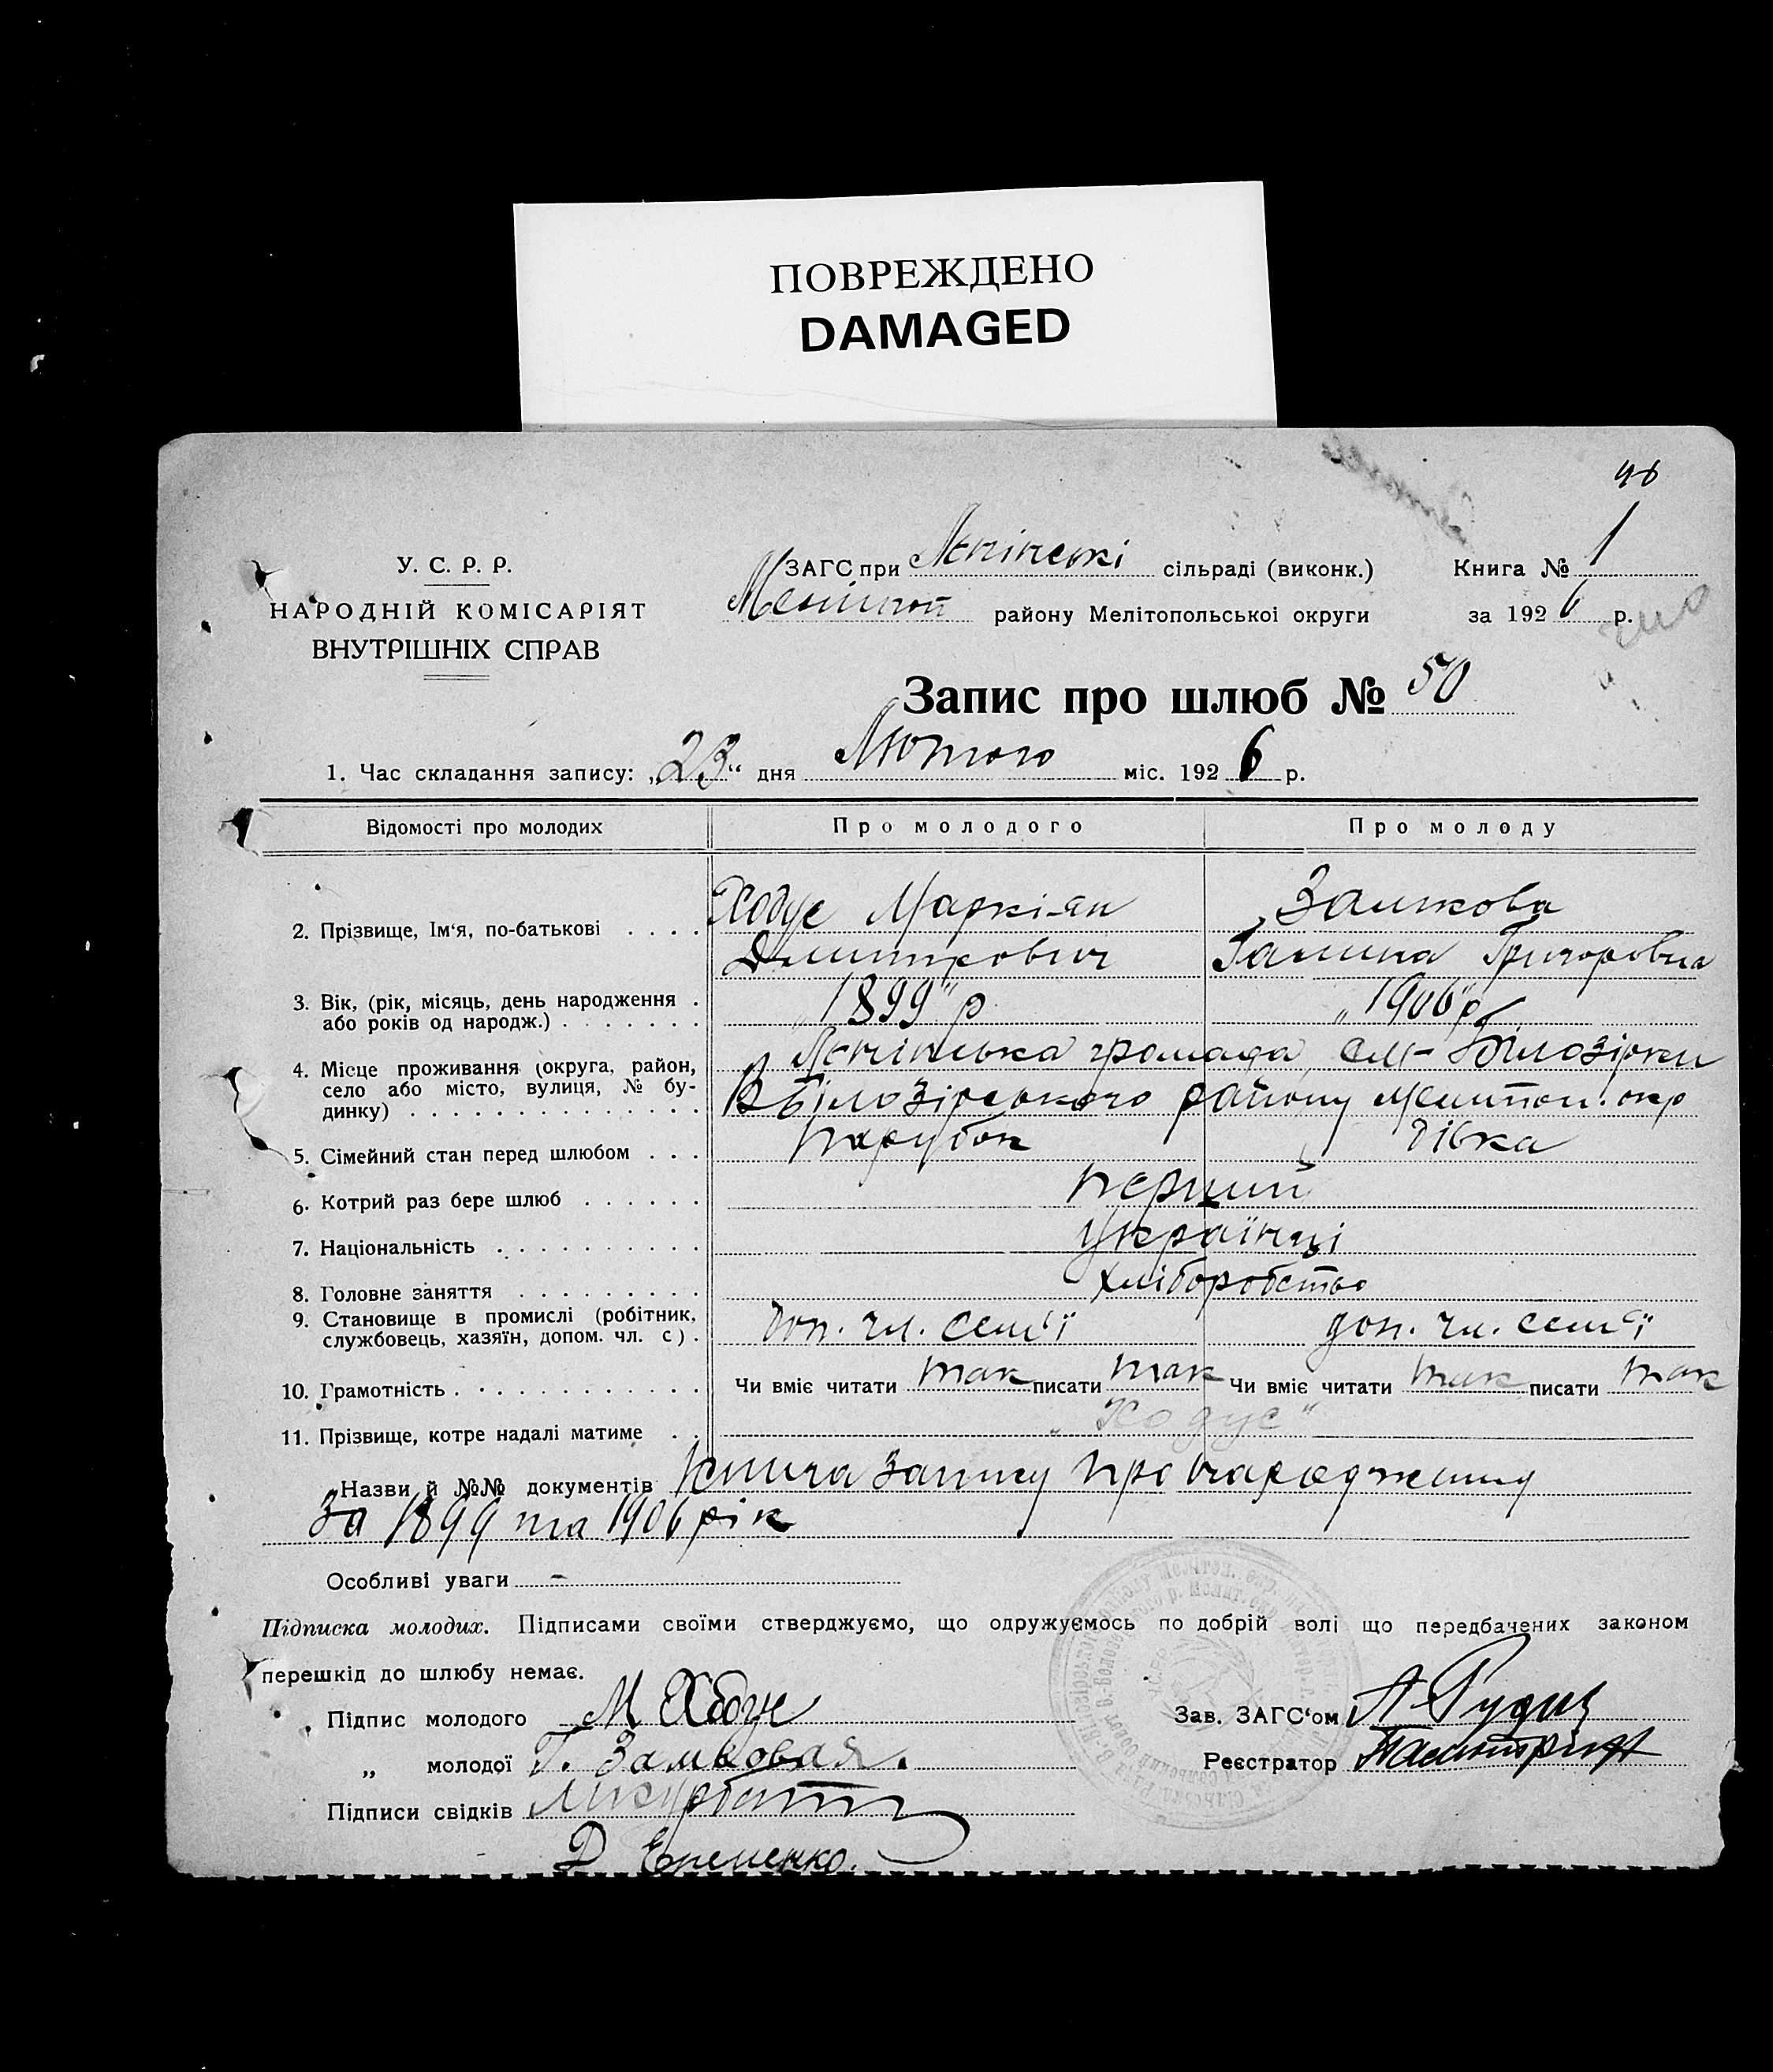 ПОВРЕЖДЕНО
DAMAGED
У. С. Р. Р.
НАРОДНІЙ КОМІСАРІЯТ
ВНУТРІШНІХ СПРАВ
ЗАГС при Ленінські сільраді (виконк.)
району Мелітопольської округи
Книга № 1
за 1926 р.
Запис про шлюб № 50
1. Час складання запису: „23“ дня Лютого міс. 1926 р.
Відомості про молодих Про молодого Про молоду
2. Прізвище, Ім‘я, по-батькові . . . . Ходус Маркіян Замкова
Дмитрович Галина Григоровна
3. Вік, (рік, місяць, день народження .
або років од народж.) . . . . . . . „1899“ р „1906“ р
4. Місце проживання (округа, район, Ленінська громада, см- Білозірки
село або місто, вулиця, № бу-
динку) . . . . . . . . . . . . . . В Білозірського району Мелитоп. окр
5. Сімейний стан перед шлюбом . . . парубок дівка
6. Котрий раз бере шлюб . . . . . . перший
7. Національність . . . . . . . . . . українці
8. Головне заняття . . . . . . . . . хліборобство
9. Становище в промислі (робітник,
службовець, хазяїн, допом. чл. с) . доп. чл. сем‘ї доп. чл. сем‘ї
10. Грамотність . . . . . . . . . . . . Чи вміє читати так писати так Чи вміє читати так писати так
11. Прізвище, котре надалі матиме . . „Ходус“
Назви й №№ документів Книга запису про народження
за 1899 та 1906 рік
Особливі уваги -
Підписка молодих. Підписами своїми стверджуємо, що одружуємось по добрій волі що передбачених законом
перешкід до шлюбу немає.
Підпис молодого М Ходус
„ молодої Г. Замковая.
Підписи свідків
Д Еременко.
Зав. ЗАГС‘ом
Реєстратор